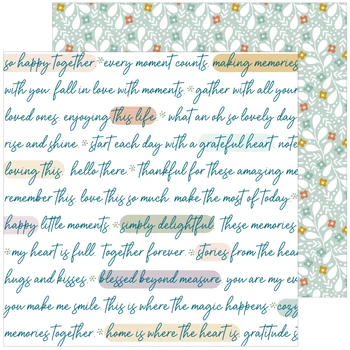 so happy together. * every moment counts. making memories
with you. fall in love with moments. * gather with all your
loved ones. enjoying this life * what an oh so lovely day
rise and shine. * start each day with a grateful heart. note
loving this. hello there * thankful for these amazing me
remember this. love this so much. make the most of today
happy little moments. * simply delightful. these memories
* my heart is full. together forever. * stories from the hear
hugs and kisses. * blessed beyond measure. you are my ev
you make me smile. this is where the magic happens * cozy
memories together. * home is where the heart is. gratitude s